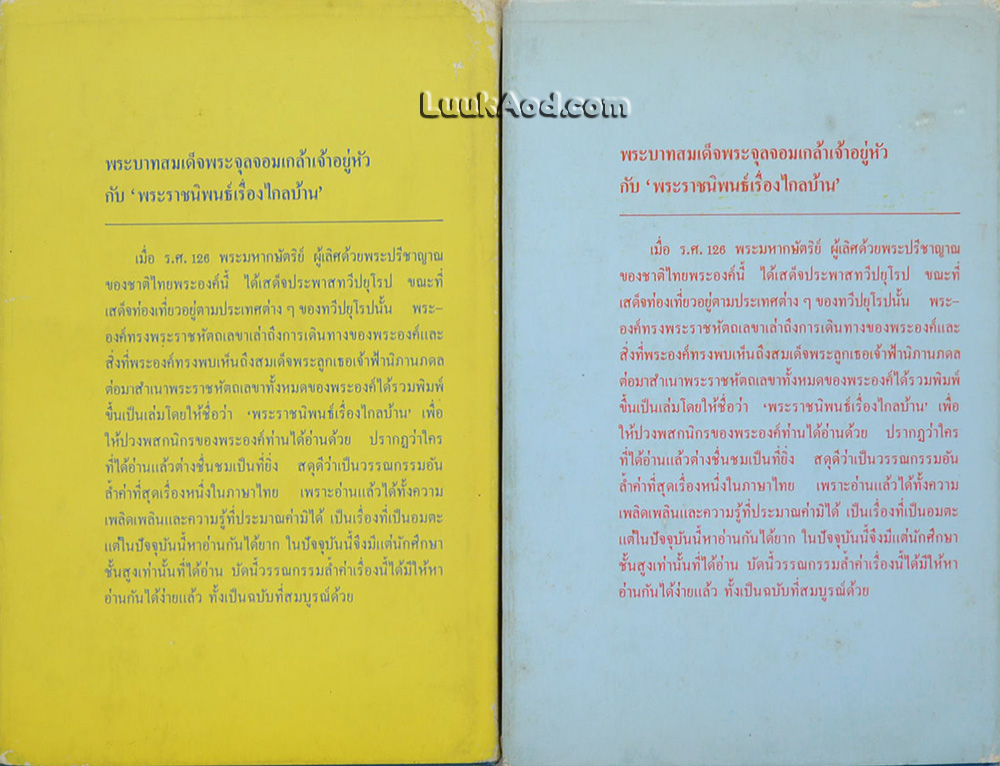 LuukAod.com
พระบาทสมเด็จพระจุลจอมเกล้าเจ้าอยู่หัว
กับ ‘พระราชนิพนธ์เรื่องไกลบ้าน’
เมื่อ ร.ศ. 126 พระมหากษัตริย์ ผู้เลิศด้วยพระปรีชาญาณ
ของชาติไทยพระองค์นี้ ได้เสด็จประพาสทวีปยุโรป ขณะที่
เสด็จท่องเที่ยวอยู่ตามประเทศต่าง ๆ ของทวีปยุโรปนั้น พระ–
องค์ทรงพระราชหัตถเลขาเล่าถึงการเดินทางของพระองค์และ
สิ่งที่พระองค์ทรงพบเห็นถึงสมเด็จพระลูกเธอเจ้าฟ้านิภานภดล
ต่อมาสำเนาพระราชหัตถเลขาทั้งหมดของพระองค์ได้รวมพิมพ์
ขึ้นเป็นเล่มโดยให้ชื่อว่า ‘พระราชนิพนธ์เรื่องไกลบ้าน’ เพื่อ
ให้ปวงพสกนิกรของพระองค์ท่านได้อ่านด้วย ปรากฏว่าใคร
ที่ได้อ่านแล้วต่างชื่นชมเป็นที่ยิ่ง สดุดีว่าเป็นวรรณกรรมอัน
ล้ำค่าที่สุดเรื่องหนึ่งในภาษาไทย เพราะอ่านแล้วได้ทั้งความ
เพลิดเพลินและความรู้ที่ประมาณค่ามิได้ เป็นเรื่องที่เป็นอมตะ
แต่ในปัจจุบันนี้หาอ่านกันได้ยาก ในปัจจุบันนี้จึงมีแต่นักศึกษา
ชั้นสูงเท่านั้นที่ได้อ่าน บัดนี้วรรณกรรมล้ำค่าเรื่องนี้ได้มีให้หา
อ่านกันได้ง่ายแล้ว ทั้งเป็นฉบับที่สมบูรณ์ด้วย
พระบาทสมเด็จพระจุลจอมเกล้าเจ้าอยู่หัว
กับ ‘พระราชนิพนธ์เรื่องไกลบ้าน’
เมื่อ ร.ศ. 126 พระมหากษัตริย์ ผู้เลิศด้วยพระปรีชาญาณ
ของชาติไทยพระองค์นี้ ได้เสด็จประพาสทวีปยุโรป ขณะที่
เสด็จท่องเที่ยวอยู่ตามประเทศต่าง ๆ ของทวีปยุโรปนั้น พระ–
องค์ทรงพระราชหัตถเลขาเล่าถึงการเดินทางของพระองค์และ
สิ่งที่พระองค์ทรงพบเห็นถึงสมเด็จพระลูกเธอเจ้าฟ้านิภานภดล
ต่อมาสำเนาพระราชหัตถเลขาทั้งหมดของพระองค์ได้รวมพิมพ์
ขึ้นเป็นเล่มโดยให้ชื่อว่า ‘พระราชนิพนธ์เรื่องไกลบ้าน’ เพื่อ
ให้ปวงพสกนิกรของพระองค์ท่านได้อ่านด้วย ปรากฏว่าใคร
ที่ได้อ่านแล้วต่างชื่นชมเป็นที่ยิ่ง สดุดีว่าเป็นวรรณกรรมอัน
ล้ำค่าที่สุดเรื่องหนึ่งในภาษาไทย เพราะอ่านแล้วได้ทั้งความ
เพลิดเพลินและความรู้ที่ประมาณค่ามิได้ เป็นเรื่องที่เป็นอมตะ
แต่ในปัจจุบันนี้หาอ่านกันได้ยาก ในปัจจุบันนี้จึงมีแต่นักศึกษา
ชั้นสูงเท่านั้นที่ได้อ่าน บัดนี้วรรณกรรมล้ำค่าเรื่องนี้ได้มีให้หา
อ่านกันได้ง่ายแล้ว ทั้งเป็นฉบับที่สมบูรณ์ด้วย